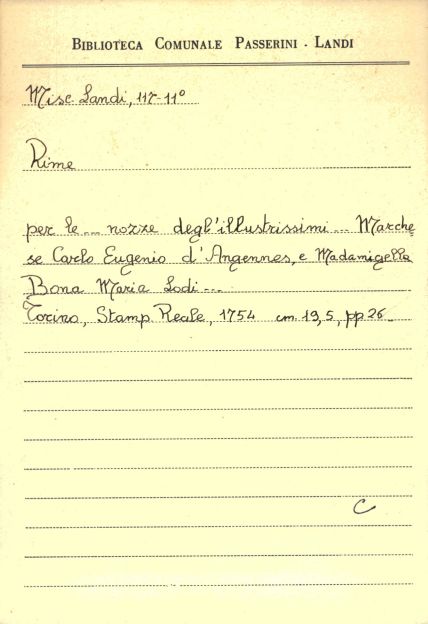 BIBLIOTECA COMUNALE PASSERINI - LANDI
Misc. Landi, 117-11°
Rime
per le ... nozze degl'illustrissimi ... Marche
se Carlo Eugenio d'Angennes, e Madamigella
Bona Maria Lodi ...
Torino, Stamp. Reale, 1754 cm. 19,5, pp. 26.
C